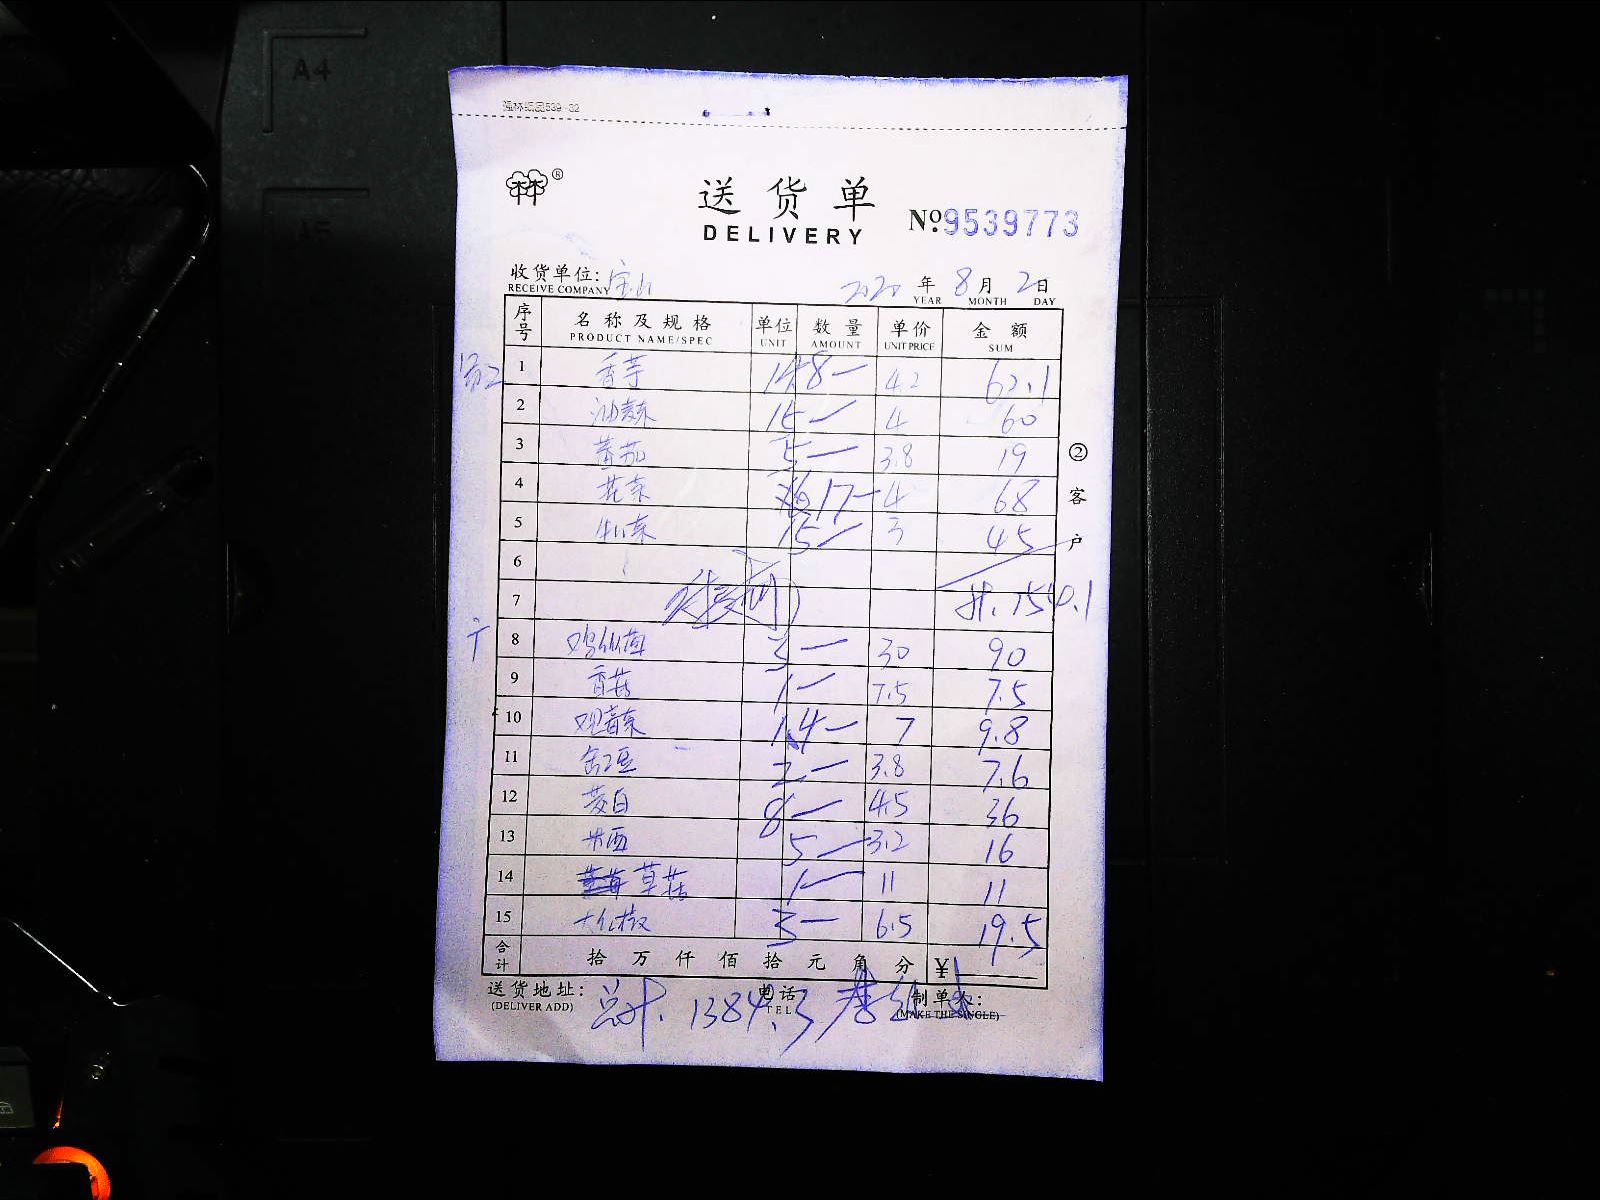 A4
A5
强林纸品539-32
林®
送货单
DELIVERY
№9539773
收货单位: 宝山
RECEIVE COMPANY
2020 年 8 月 2 日
YEAR MONTH DAY
序号 名称及规格 单位 数量 单价 金额
PRODUCT NAME/SPEC UNIT AMOUNT UNIT PRICE SUM
1 香芋 14.8 — 4.2 62.1
2 油麦菜 15 — 4 60
3 蕃茄 5 — 3.8 19
4 花菜 17 — 4 68
5 15 — 3 45
6
7 计. 1554.1
8 鸡丝菌 3 — 30 90
9 香菇 1 — 7.5 7.5
10 观音菜 1.4 — 7 9.8
11 缸豆 2 — 3.8 7.6
12 茭白 8 — 4.5 36
13 米西 5 — 3.2 16
14 草菇 1 — 11 11
15 大红椒 3 — 6.5 19.5
合计 拾 万 仟 佰 拾 元 角 分 ¥
送货地址: 电话 制单人:
(DELIVER ADD) TEL (MAKE THE SINGLE)
总计. 1384.3
②客户